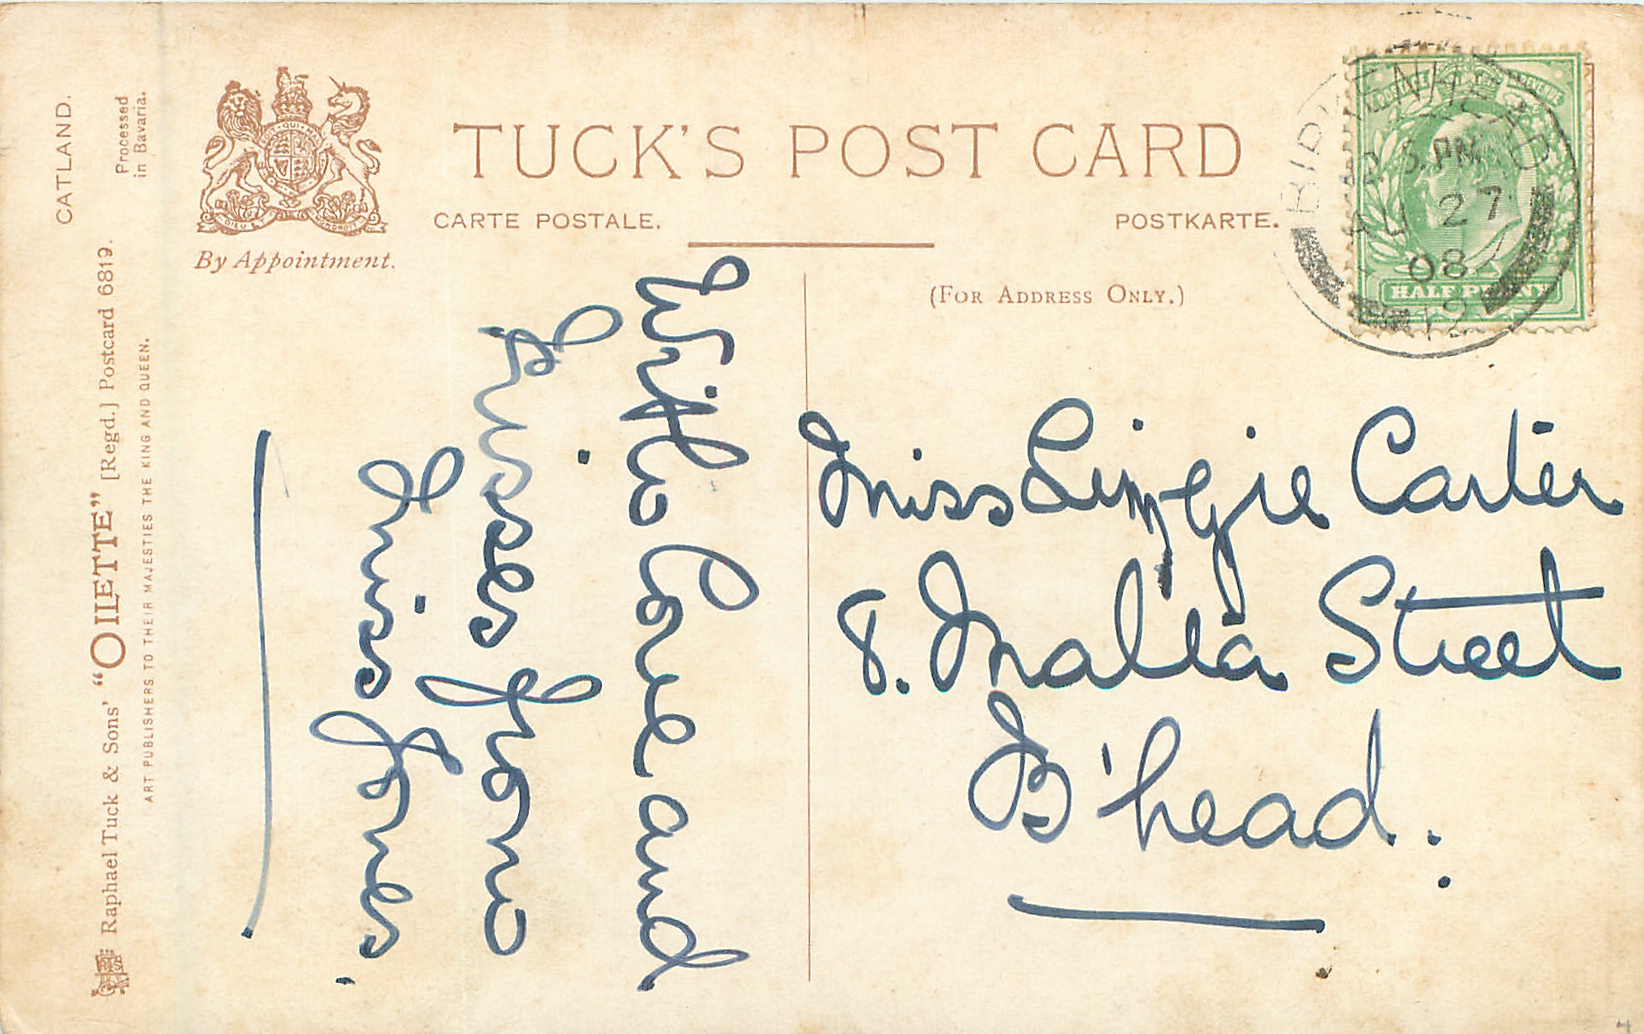 CATLAND.
Processed
in Bavaria.
Raphael Tuck & Sons' "OILETTE" [Regd.] Postcard 6819.
ART PUBLISHERS TO THEIR MAJESTIES THE KING AND QUEEN.
By Appointment.
TUCK'S POST CARD
CARTE POSTALE.
POSTKARTE.
(FOR ADDRESS ONLY.)
BIRKENHEAD
5. PM
27
08
HALF PENNY
With Love and
Kisses from
Miss Jones.
Miss Lizzie Carter
8. Malta Street
B'head.